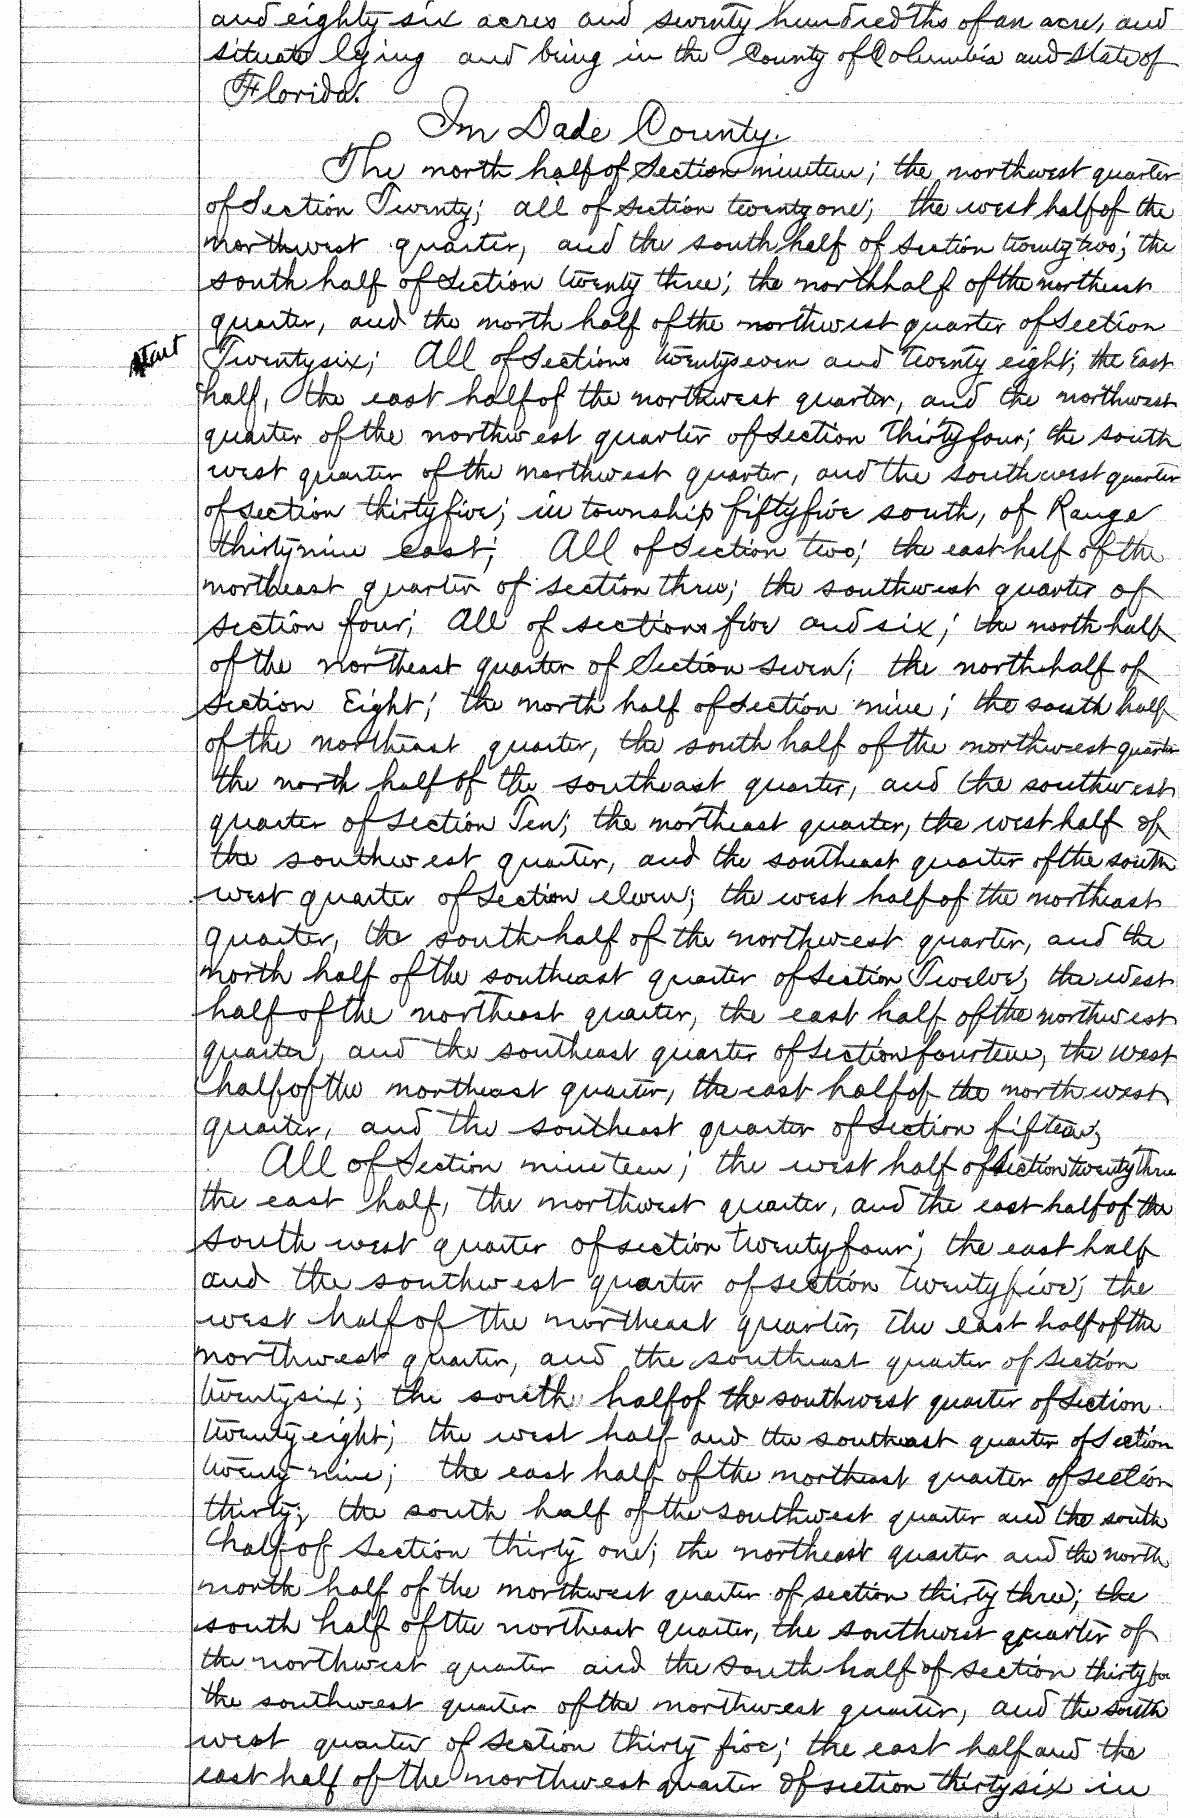 and eighty six acres and seventy hundredths of an acre, and
situate lying and being in the County of Columbia and State of
Florida.
In Dade County.
The north half of Section nineteen; the northwest quarter
of Section Twenty; all of section twenty one; the west half of the
northwest quarter, and the south half of section twenty two; the
south half of Section twenty three; the north half of the northeast
quarter, and the north half of the northwest quarter of Section
start
Twenty six; All of Sections twenty seven and twenty eight; the East
half, the east half of the northwest quarter, and the northwest
quarter of the northwest quarter of Section Thirty four; the south
west quarter of the northwest quarter, and the southwest quarter
of section thirty five; in township fifty five south, of Range
thirty nine east; All of Section two; the east half of the
northeast quarter of section three; the southwest quarter of
section four; All of sections five and six; the north half
of the northeast quarter of Section seven; the north half of
Section Eight; the north half of section nine; the south half
of the northeast quarter, the south half of the northwest quarter
the north half of the southeast quarter, and the southwest
quarter of Section Ten; the northeast quarter, the west half of
the southwest quarter, and the southeast quarter of the south
west quarter of Section eleven; the west half of the northeast
quarter, the south half of the northwest quarter, and the
north half of the southeast quarter of Section Twelve, the west
half of the northeast quarter, the east half of the northwest
quarter, and the southeast quarter of Section fourteen, the west
half of the northeast quarter, the east half of the north west
quarter, and the southeast quarter of Section fifteen,
All of Section nineteen; the west half of Section twenty three
the east half, the northwest quarter, and the east half of the
south west quarter of section twenty four; the east half
and the southwest quarter of section twenty five; the
west half of the northeast quarter, the east half of the
northwest quarter, and the southeast quarter of Section
twenty six; the south half of the southwest quarter of Section
twenty eight; the west half and the southeast quarter of Section
twenty nine; the east half of the northeast quarter of section
thirty; the south half of the southwest quarter and the south
half of Section thirty one; the northeast quarter and the north
north half of the northwest quarter of section thirty three; the
south half of the northeast quarter, the southwest quarter of
the northwest quarter and the south half of section thirty fo
the southwest quarter of the northwest quarter, and the south
west quarter of Section thirty five; the east half and the
east half of the northwest quarter of section thirty six in